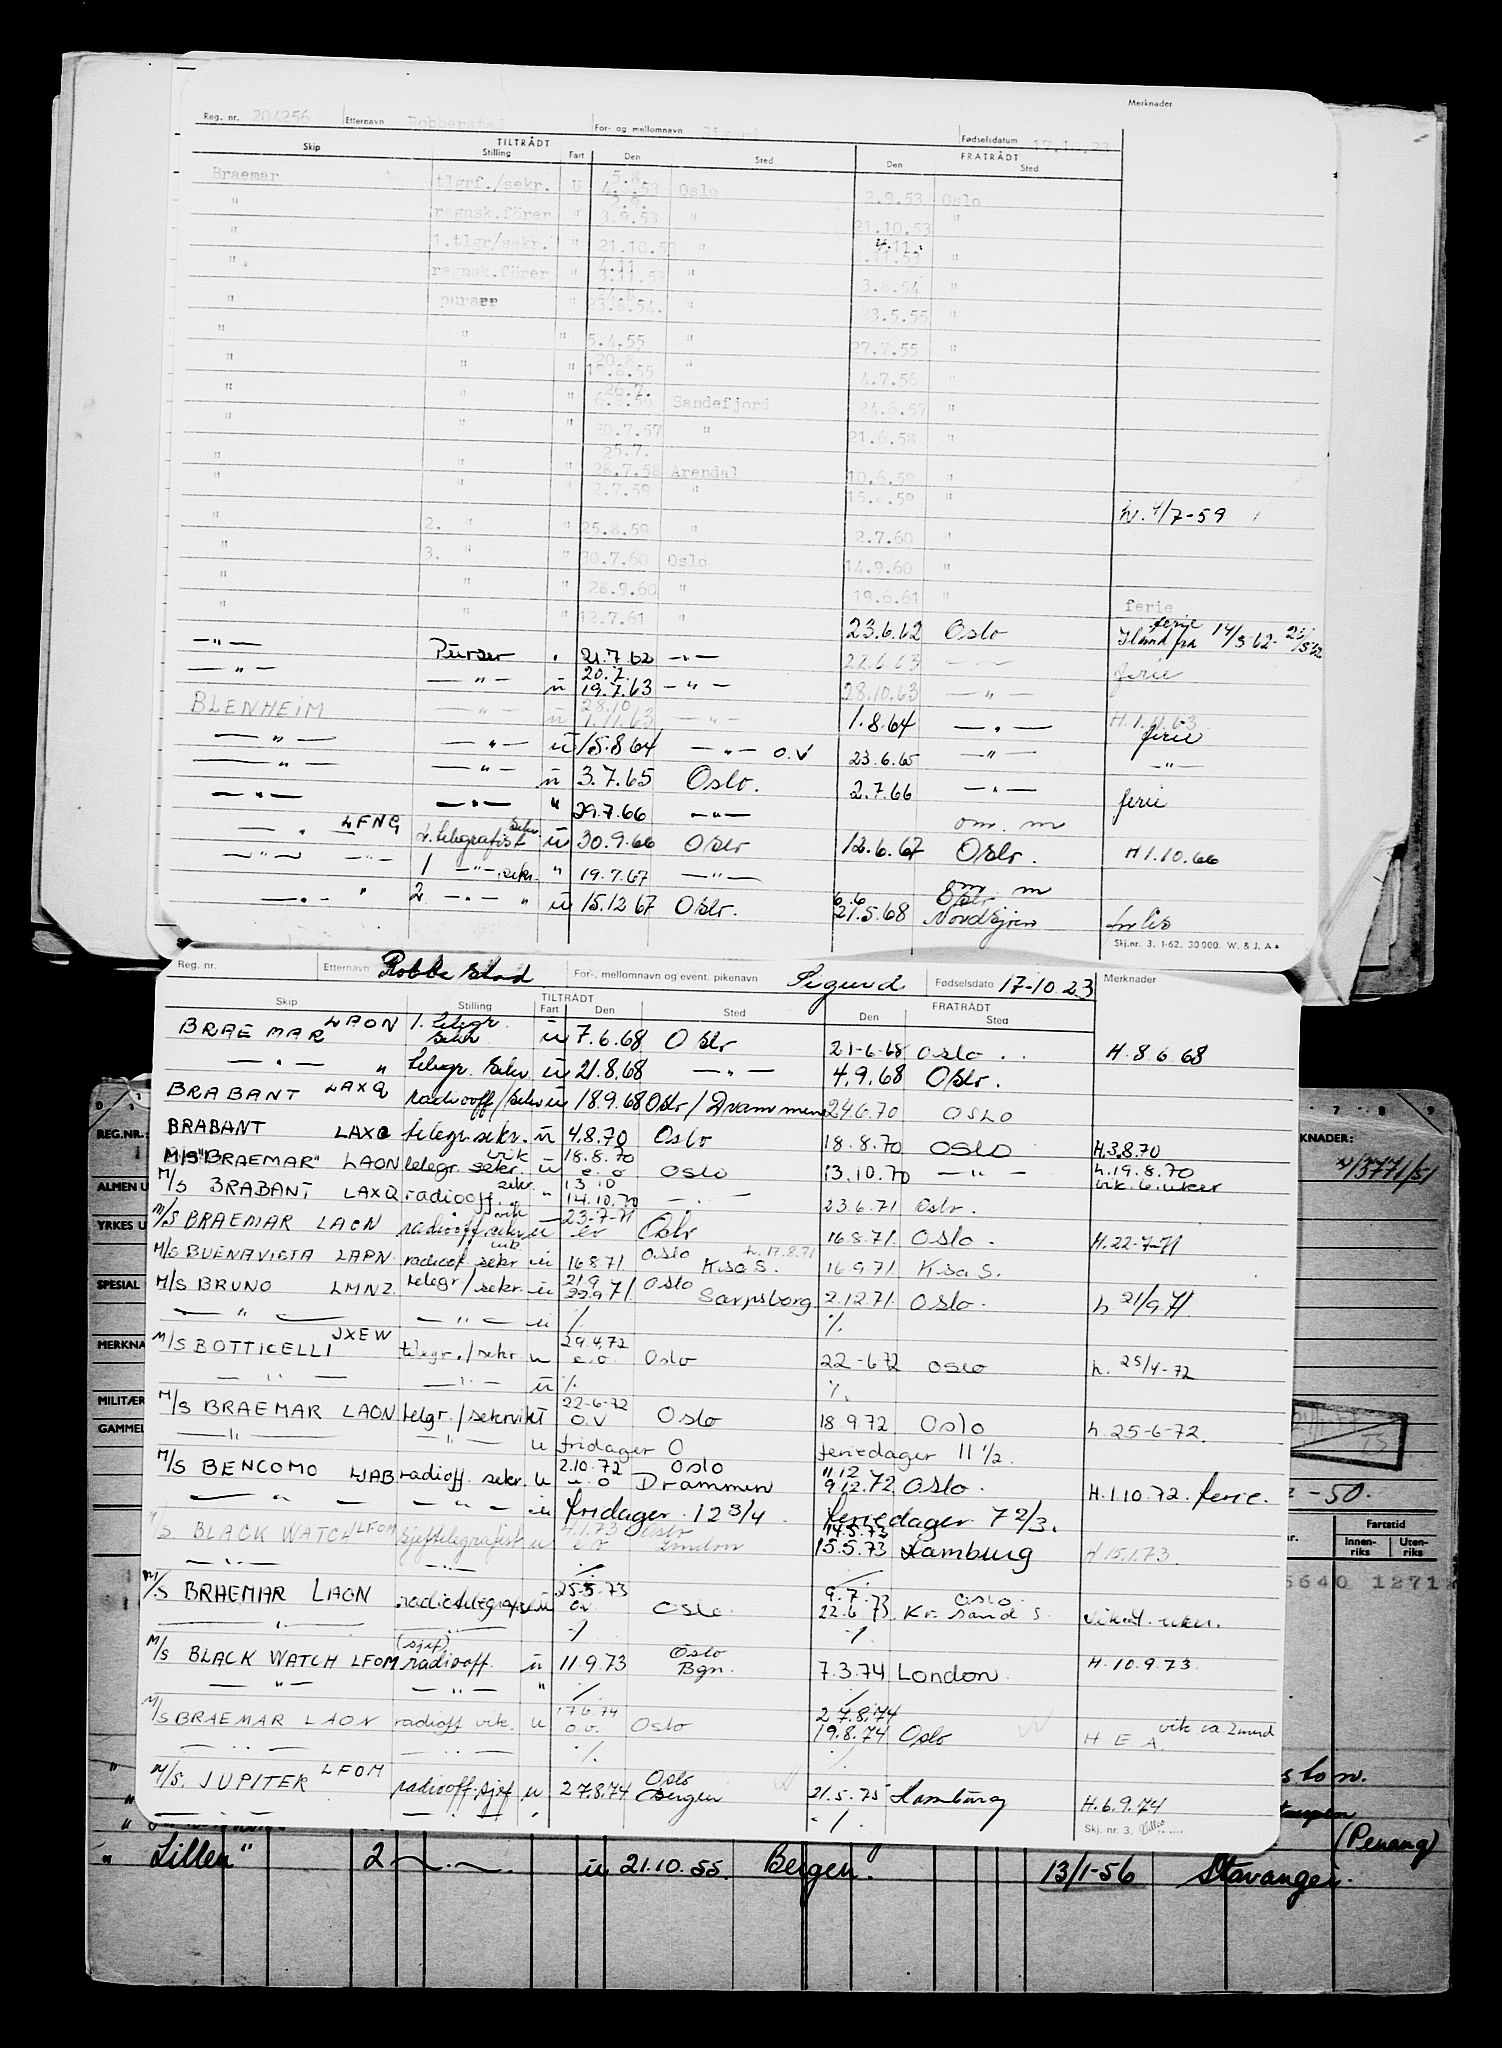 Merknader
Reg. nr. 201256 Etternavn Robberstad For- og mellomnavn Sigurd Fødselsdatum 17.10.23
TILTRÅDT FRATRÅDT
Skip Stilling Fart Den Sted Den Sted
Braemar tlgrf./sekr. U 5.8. 4. .53 Oslo 2.9.53 Oslo
" regnsk.fører " 3.9.53 " 21.10.53 "
" 1.tlgr/sekr. " 21.10.53 " 4.11. "
" regnsk.fører " 4.11. 3.11.53 " 3.8.54 "
" purser " 23.8.54. " 23.5.55 "
" " " 5.4.55 27.7.55 "
" " " 20.8. 19.8.55 4.7.56 "
" " " 26.7. 6.8.56 Sandefjord 24.6.57 "
" " " 20.7.57 " 21.6.58 "
" " " 25.7. 28.7.58 Arendal 10.6.59 "
" " " 2.7.59 " 15.8.59 " h. 4/7-59
" 2. " " 25.8.59 2.7.60 "
" 3. " " 30.7.60 Oslo 14.9.60 "
" " " 28.9.60 " 19.6.61 " ferie
" " " 12.7.61 " 23.6.62 Oslo ferie Iland fra 14/5 62-
—"— Purser " 21.7.62 —"— 22.6.63 —"— ferie
—"— —"— u 20.7. 19.7.63 —"— 28.10.63 —"—
BLENHEIM —"— u 28.10 1.11.63 —"— 1.8.64 —"— H.1.11.63 ferie
—"— —"— u 15.8.64 —"— o.v 23.6.65 —"— —"—
—"— —"— u 3.7.65 Oslo. 2.7.66 —"— ferie
—"— —"— " 29.7.66 —"— om. m
—"— LFNG 2. telegrafist sekr. u 30.9.66 Oslo 12.6.67 Oslo. H 1.10.66
—"— —"— 1 —"— sekr. " 19.7.67 —"— om. m
—"— " 2 —"— " u 15.12.67 Oslo. 6.6 21.5.68 Oslo. Nordsjøen
Skj.nr. 3. 1-62. 30000. W. & J. A s
Reg. nr. Etternavn Robbestad For-, mellomnavn og event. pikenavn Sigurd. Fødselsdato 17-10.23 Merknader
TILTRÅDT FRATRÅDT
Skip Stilling Fart Den Sted Den Sted
BRAEMAR LAON 1. telegr. sekr u 7.6.68 Oslo 21-6-68 Oslo . . H.8.6.68
—"— " telegr. sekr u 21.8.68 —"— 4.9.68 Oslo.
BRABANT LAXQ radiooff/sekr u 18.9.68 Oslo/Drammen 24.6.70 OSLO
BRABANT LAXQ telegr.sekr. u 4.8.70 Oslo 18.8.70 OSLO H.3.8.70
M/S "BRAEMAR" LAON telegr. sekr. vik u 18.8.70 e.o Oslo 13.10.70 —"— h.19.8.70 vik. 6. uker
M/S BRABANT LAXQ radiooff. sekr. " 13.10 14.10.70 —"— 23.6.71 Oslo.
M/S BRAEMAR LAON radiooff sekr vik u 23-7-71 ev Oslo 16.8.71 Oslo. H.22-7-71
M/S BUENAVISTA LAPN. radioof sekr vik u 16871 Oslo K.sa S. h. 17.8.71 16.9.71 K.sa S.
M/S BRUNO LMNZ. telegr/sekr. u 21.9 22.9.71 Oslo Sarpsborg 2.12.71 Oslo. h 21/9 71
—"— —"— u ·/. ·/.
M/S BOTTICELLI JXEW telegr./sekr u 29.4.72 e.o. Oslo 22-6-72 OSLO h. 25/4-72
—"— —"— u ·/. ·/.
M/S BRAEMAR LAON telgr./sekrvikt 22-6-72 o.v Oslo 18.9.72 Oslo h. 25-6-72.
—"— —"— u fridager 0 feriedager 11 ½
M/S BENCOMO LJAB radioff. sekr. u 2.10.72 u.o Oslo Drammen 11 12 9.12.72 Oslo. H.1.10.72. ferie.
—"— —"— u fridager 12 3/4 feriedager 7 2/3.
M/S BLACK WATCH LFOM sjeftelegrafist u 4.1.73 e.o Oslo London 14.5.73 15.5.73 Hamburg H 15.1.73.
—"— —"— ·/. ·/.
M/S BRAEMAR LAON radiotelegrafist u 25.5.73 o.v Oslo. 9.7.73 22.6.73 Oslo. Kr. sand S.
—"— —"— ·/. ·/.
M/S BLACK WATCH LFOM (sjef) radiooff. u 11.9.73 Oslo Bgn. 7.3.74 London. H. 10.9.73.
—"— —"— " ·/. ·/.
M/S BRAEMAR LAON radioff vik. u 17.6.74 o.v. Oslo 27.8.74 19.8.74 Oslo H E A vik ca. 2 mnd
—"— —"— ·/. ·/.
M/S. JUPITER LFOM radiooff.sjef u 27.8.74 Oslo Bergen 21.5.75 Hamburg H.6.9.74
—"— —"— " ·/.
Skj. nr. 3.
REG.NR.:
ALMEN U
YRKES U
SPESIAL
MERKNA
MILITÆR
GAMMEL
7 8 9
KNADER:
13771/51
-50.
Fartstid
Innen-riks Uten-riks
5640 1271
(Penang)
" Lillen" 2 —"— u 21.10.55. Bergen. 13/1-56 Stavanger.